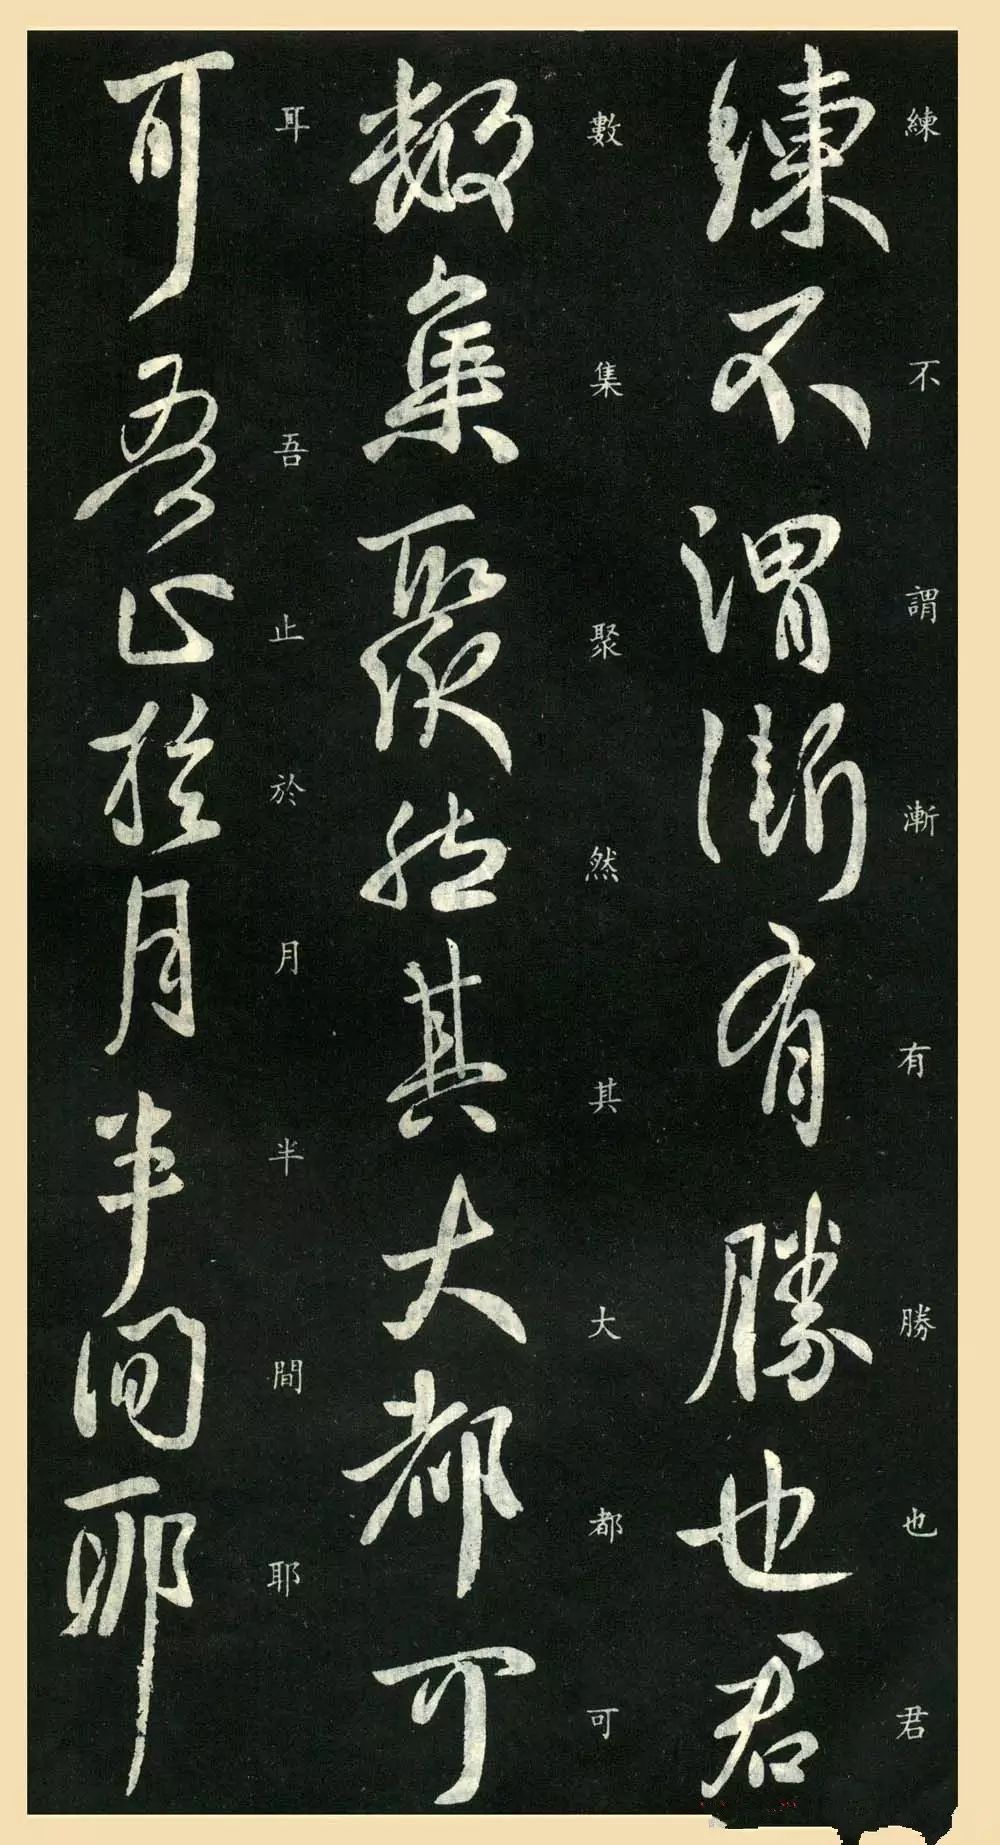 練不謂漸有勝也君
練不謂漸有勝也君
數集聚然其大都可
數集聚然其大都可
耳吾止於月半間耶
耳吾止於月半間耶